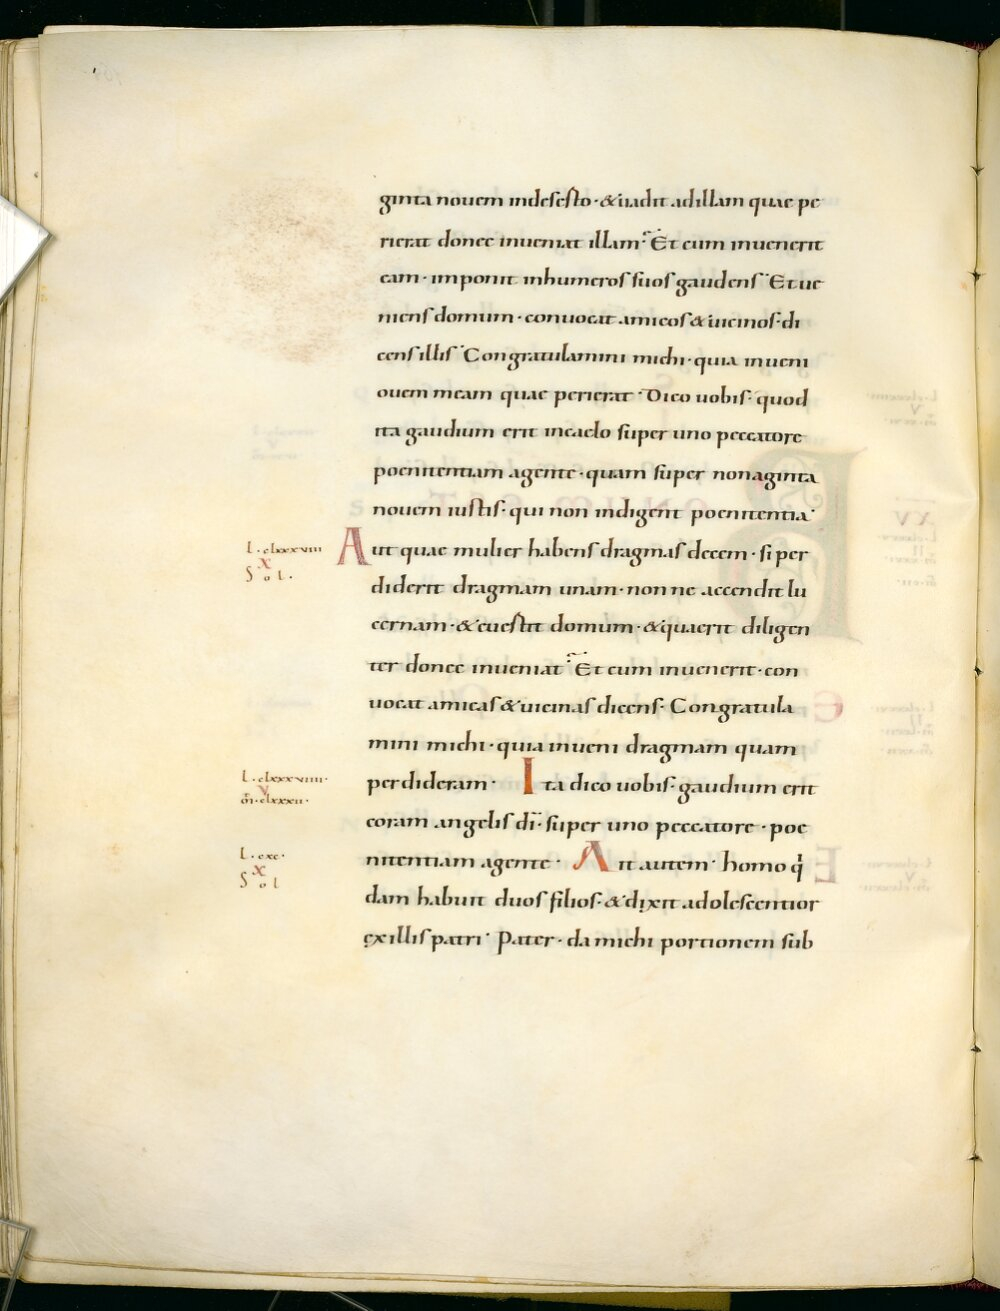 ginta nouem indeserto · & uadit ad illam quae pe
rierat donec inueniat illam · Et cum inuenerit
eam · imponit in humeros suos gaudens · Et ue
niens domum · conuocat amicos & uicinos · di
cens illis · Congratulamini michi · quia inueni
ouem meam quae perierat · Dico uobis · quod
ita gaudium erit incaelo super uno peccatore
poenitentiam agente · quam super nonaginta
nouem iustis · qui non indigent poenitentia ·
L · clxxxviii
X
Sol ·
Aut quae mulier habens dragmas decem · si per
diderit dragmam unam · non ne accendit lu
cernam · & euertit domum · & quaerit diligen
ter donec inueniat · Et cum inuenerit · con
uocat amicas & uicinas dicens · Congratula
mini michi · quia inueni dragmam quam
L · clxxxviiii ·
V
m̄ · clxxxii ·
perdideram · Ita dico uobis · gaudium erit
coram angelis dī · super uno peccatore · poe
L · cxc ·
X
Sol
nitentiam agente · Ait autem · homo q̇
dam habuit duos filios · & dixit adolescentior
ex illis patri · Pater · da michi portionem sub